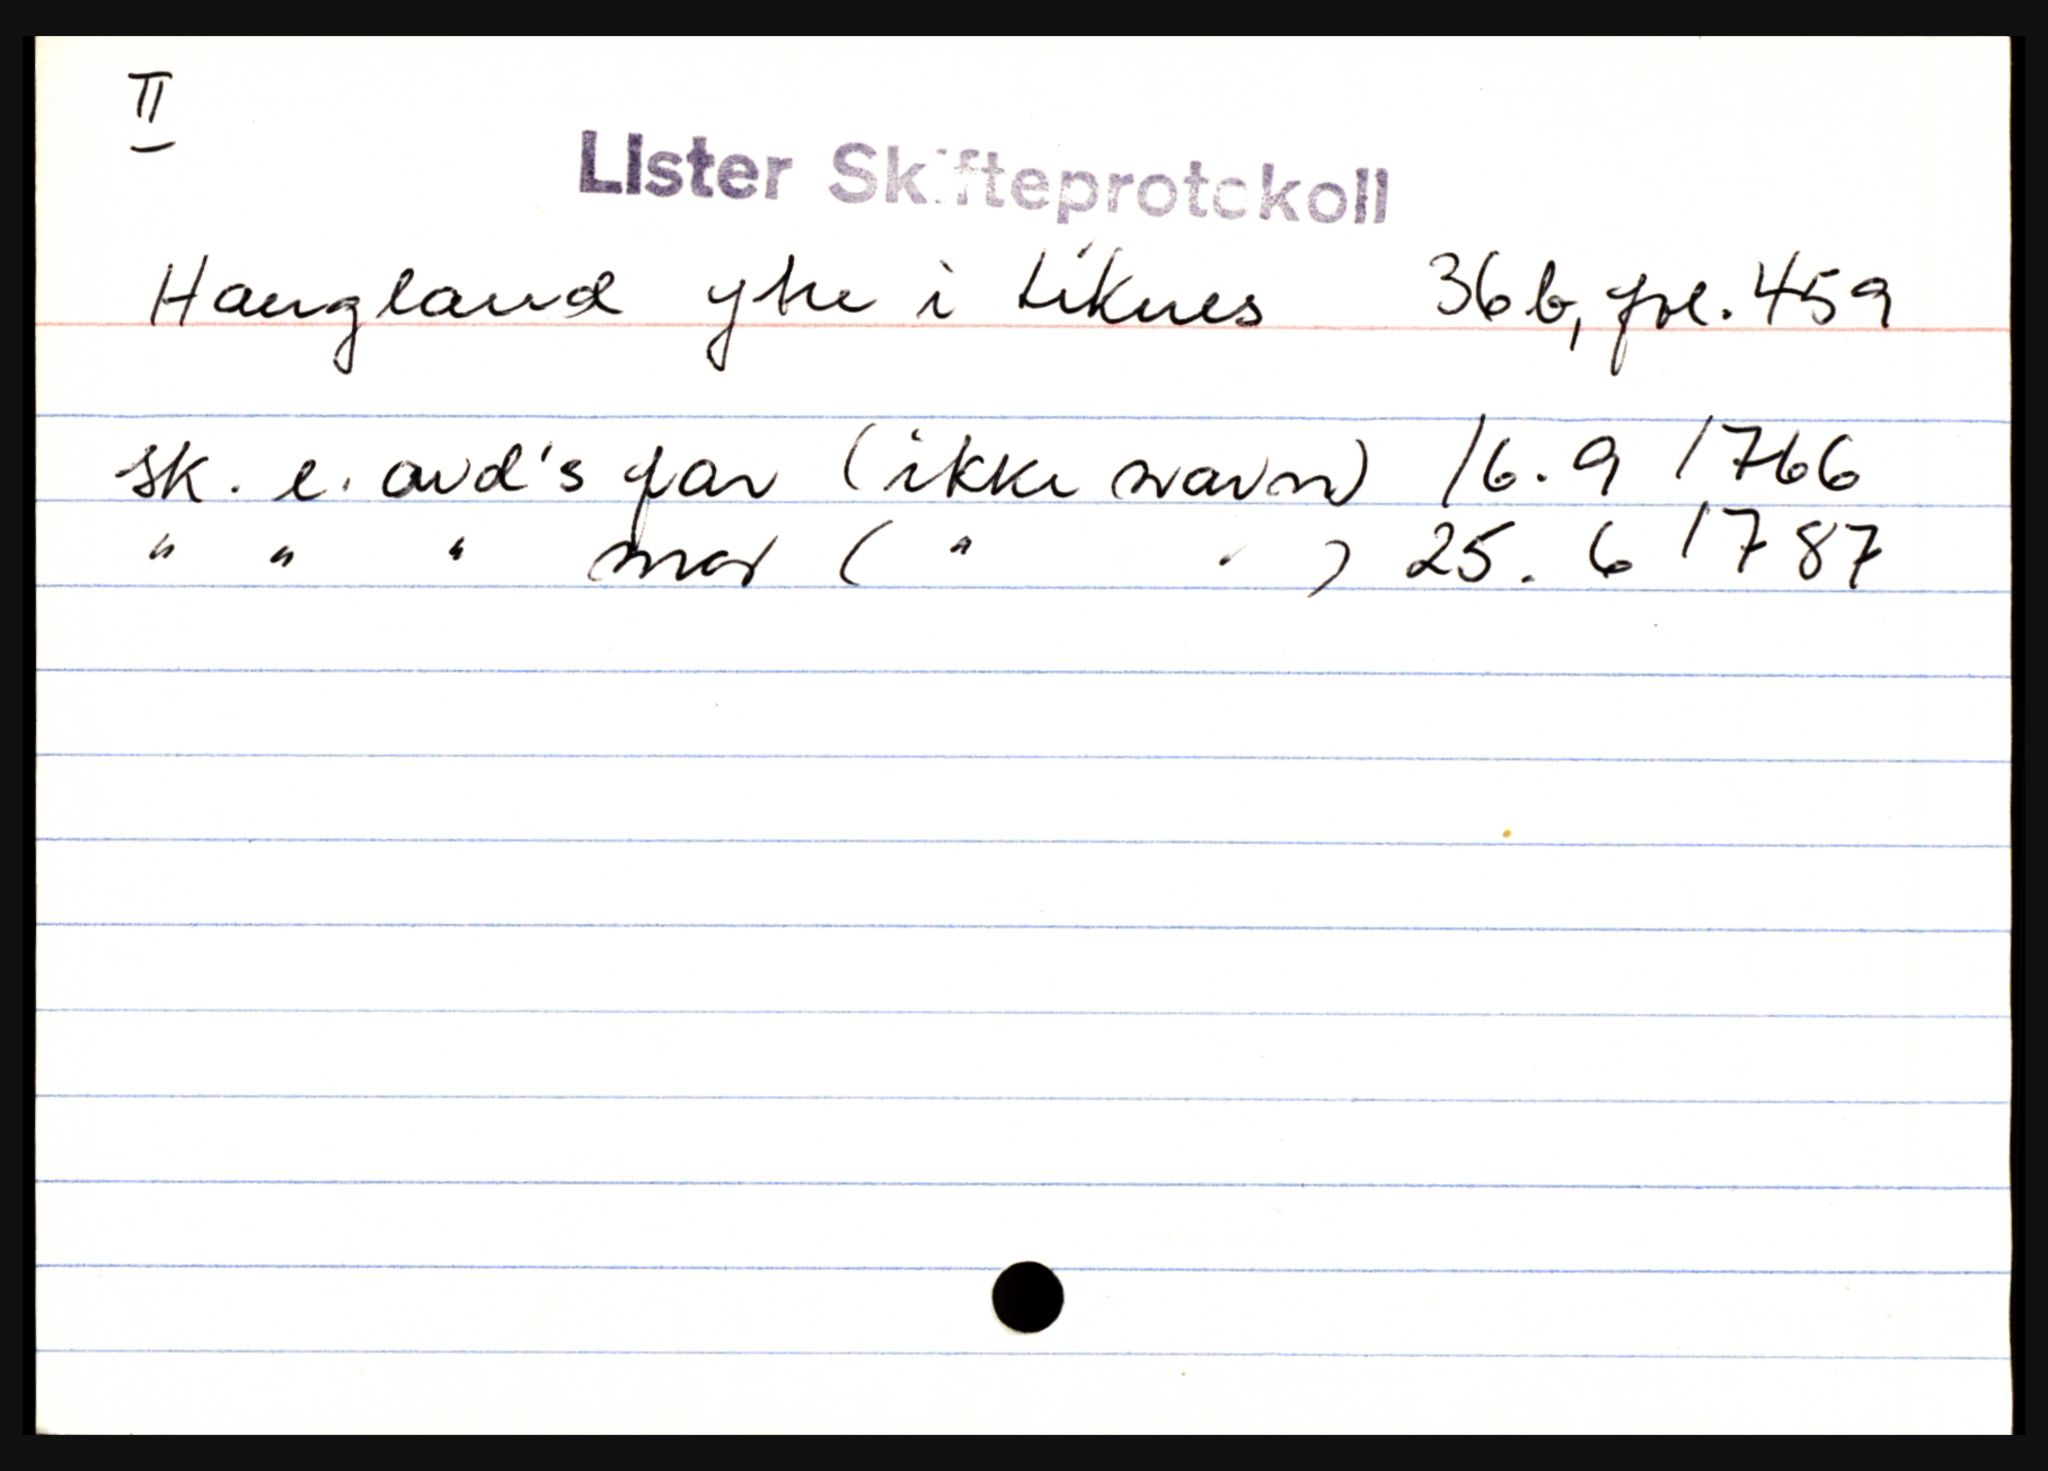 II
Lister Skifteprotokoll
Haugland ytre i Liknes 36b, fol. 459
sk. e. avd's far (ikke navn) 16. 9 1766
" " " mor ( " " ) 25. 6 1787